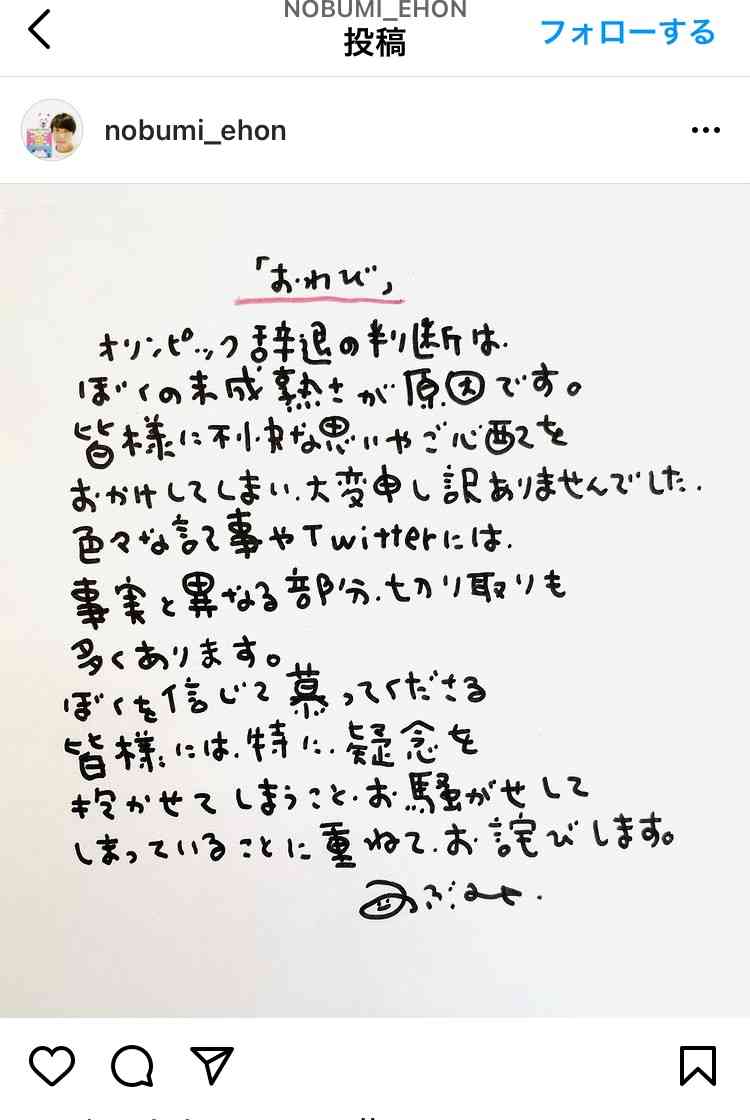 NOBUMI_EHON
投稿
フォローする
nobumi_ehon
「おわび」
オリンピック辞退の判断は、
ぼくの未成熟さが原因です。
皆様に不快な思いやご心配を
おかけしてしまい、大変申し訳ありませんでした。
色々な記事やTwitterには、
事実と異なる部分、切り取りも
多くあります。
ぼくを信じて慕ってくださる
皆様には、特に、疑念を
抱かせてしまうこと、お騒がせして
しまっていることに重ねて、お詫びします。
のぶみ.